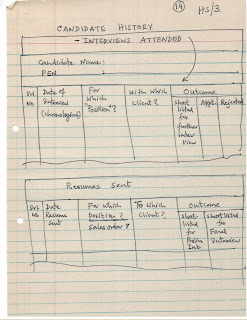 (14) HS/3.
CANDIDATE HISTORY
- INTERVIEWS ATTENDED
Candidate Name:
PEN :
Srl. No
Date of Interview (chronological)
For Which "Position"?
With Which Client?
Outcome
Short listed for further interview
Appt.
Rejected
Resumes Sent
Srl. No
Date Resume sent
For which Position? Sales order?
To Which Client?
Outcome
Short-listed for Prelim Int.
Shortlisted for Final Interview